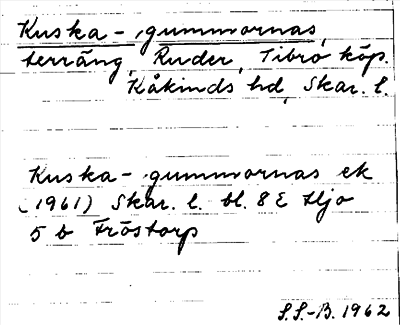 Kuska-gummornas,
terräng, Ruder, Tibro köp.
Kåkinds hd, Skar. l.
Kuska-gummornas ek
(1961) Skar. l. bl. 8 E Hjo
5 b Fröstorp
S.S.-B. 1962